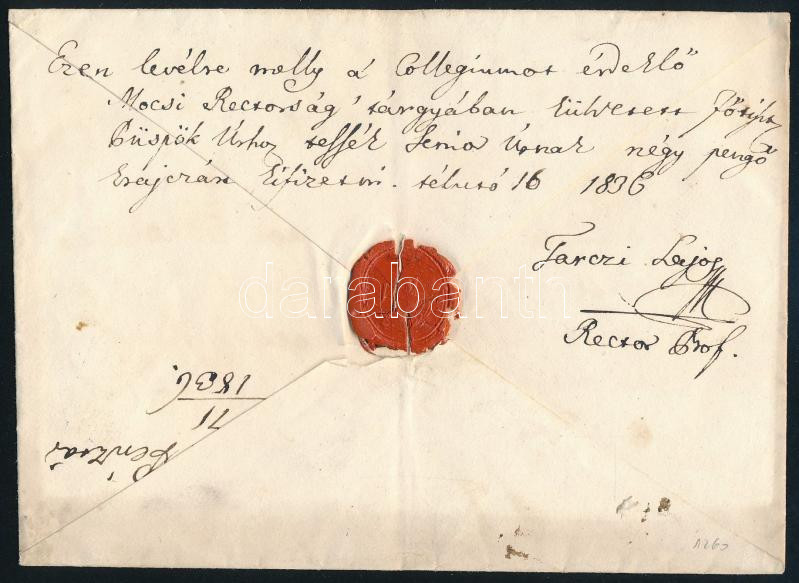 Ezen levélre melly a Collegiumot érdeklő
Mocsi Rectorság' tárgyában küldetett Főtiszt
Püspök Úrhoz tessék Senior Úrnak négy pengő
krajczárt kifizetni. télutó 16 1836
Tarczi Lajos
Rector Prof.
darabanth
71
1836.
Pénztár
1260